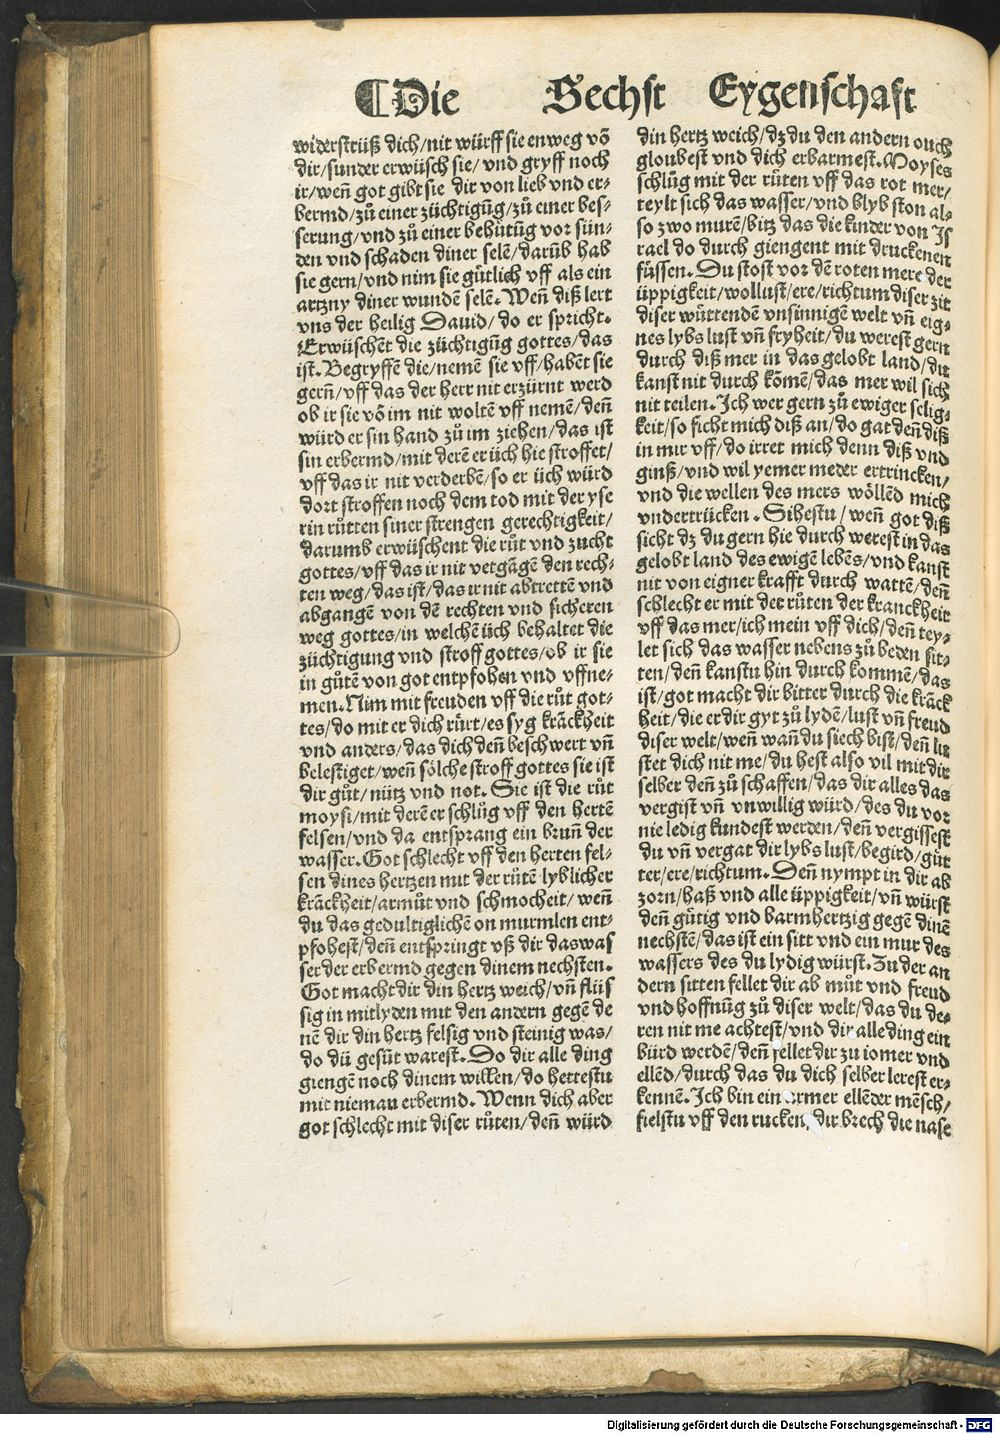 ¶Die Sechst Eygenschaft
widerstrüß dich/nit würff sie enweg võ
dir/sunder erwüsch sie/vnd gryff noch
ir/weñ got gibt sie dir von lieb vnd er⸗
bermd/zů einer züchtigũg/zů einer bes⸗
serung/vnd zů einer behütũg vor sün⸗
den vnd schaden diner selẽ/darũb hab
sie gern/vnd nim sie gůtlich vff als ein
artzny diner wundẽ selẽ. Weñ diß lert
vns der heilig Dauid/do er spricht.
Erwüschẽt die züchtigũg gottes/das
ist. Begryffẽ die/nemẽ sie vff/habẽt sie
gerñ/vff das der herr nit erzürnt werd
ob ir sie võ im nit woltẽ vff nemẽ/deñ
würd er sin hand zů im ziehen/das ist
sin erbermd/mit derẽ er üch hie stroffet/
vff das ir nit verderbẽ/so er üch würd
dort stroffen noch dem tod mit der yse
rin růtten siner strengen gerechtigkeit/
darumb erwüschent die růt vnd zucht
gottes/vff das ir nit vetgãgẽ den rech⸗
ten weg/das ist/das ir nit abtrettẽ vnd
abgangẽ von dẽ rechten vnd sicheren
weg gottes/in welchẽ üch behaltet die
züchtigung vnd stroff gottes/ob ir sie
in gůtẽ von got entpfohen vnd vffne⸗
men. Nim mit freuden vff die růt got⸗
tes/do mit er dich rürt/es syg krãckheit
vnd anders/das dich deñ beschwert vñ
belestiget/weñ sölche stroff gottes sie ist
dir gůt/nütz vnd not. Sie ist die růt
moysi/mit derẽ er schlůg vff den hertẽ
felsen/vnd da entsprang ein bruñ der
wasser. Got schlecht vff den herten fel⸗
sen dines hertzen mit der růtẽ lyblicher
krãckheit/armůt vnd schmocheit/weñ
du das gedultiglichẽ on murmlen ent⸗
pfohest/deñ entspringt vß dir das was
ser der erbermd gegen dinem nechsten.
Got macht dir din hertz weich/vñ flüs
sig in mitlyden mit den andern gegẽ de
nẽ dir din hertz felsig vnd steinig was/
do dü gesüt warest. Do dir alle ding
giengẽ noch dinem willen/do hettestu
mit nieman erbermd. Wenn dich aber
got schlecht mit diser růten/deñ würd
din hertz weich/dz du den andern ouch
gloubest vnd dich erbarmest. Moyses
schlůg mit der růten vff das rot mer/
teylt sich das wasser/vnd blyb ston al⸗
so zwo murẽ/bitz das die kinder von Is
rael do durch giengent mit druckenen
füssen. Du stost vor dẽ roten mere der
üppigkeit/wollust/ere/richtum diser zit
diser wüttendẽ vnsinnigẽ welt vñ eig⸗
nes lybs lust vñ fryheit/du werest gern
durch diß mer in das gelobt land/du
kanst nit durch kõmẽ/das mer wil sich
nit teilen. Ich wer gern zů ewiger selig⸗
keit/so ficht mich diß an/do gat deñ diß
in mir vff/do irret mich denn diß vnd
ginß/vnd wil yemer meder ertrincken/
vnd die wellen des mers wöllẽd mich
vndertrücken. Sihestu/weñ got diß
sicht dz du gern hie durch werest in das
gelobt land des ewigẽ lebẽs/vnd kanst
nit von eigner krafft durch wattẽ/deñ
schlecht er mit der růten der kranckheit
vff das mer/ich mein vff dich/deñ tey⸗
let sich das wasser nebens zů beden sit⸗
ten/deñ kanstu hin durch kommẽ/das
ist/got macht dir bitter durch die krãck
heit/die er dir gyt zů lydẽ/lust vñ freud
diser welt/weñ wañ du siech bist/deñ lu
stet dich nit me/du hest also vil mit dir
selber deñ zů schaffen/das dir alles das
vergist vñ vnwillig würd/des du vor
nie ledig kundest werden/deñ vergissest
du vñ vergat dir lybs lust/begird/gůt
ter/ere/richtum. Deñ nympt in dir ab
zorn/haß vnd alle üppigkeit/vñ würst
deñ gůtig vnd barmhertzig gegẽ dinẽ
nechstẽ/das ist ein sitt vnd ein mur des
wassers des du lydig würst. Zu der an
dern sitten fellet dir ab můt vnd freud
vnd hoffnũg zů diser welt/das du de⸗
ren nit me achtest/vnd dir alle ding ein
bürd werdẽ/deñ fellet dir zu iomer vnd
ellẽd/durch das du dich selber lerest er⸗
kennẽ. Ich bin ein armer ellẽder mẽsch/
fielstu vff den rucken, dir brech die nase
Digitalisierung gefördert durch die Deutsche Forschungsgemeinschaft - DFG